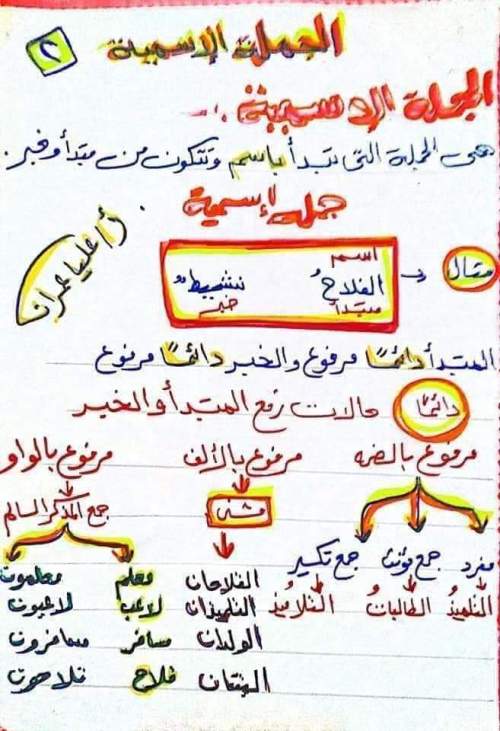 ٢
الجملة الإسمية
الجملة الاسمية :
هى الجملة التى تبدأ باسم وتتكون من مبتدأ وخبر.
جملة إسمية
أ/ علياء عمران
مثال
اسم
الفلاحُ نشيطٌ
مبتدا خبر
المبتدأ دائمًا مرفوع والخبر دائمًا مرفوع
دائمًا حالات رفع المبتدأ والخبر
مرفوع بالضمه مرفوع بالألف مرفوع بالواو
مثنى جمع المذكر السالم
مفرد جمع مؤنث جمع تكسير
التلميذُ الطالباتُ التلاميذُ
الفلاحان معلم معلمون
التلميذان لاعب لاعبون
الولدان مسافر مسافرون
البنتان فلاح فلاحون